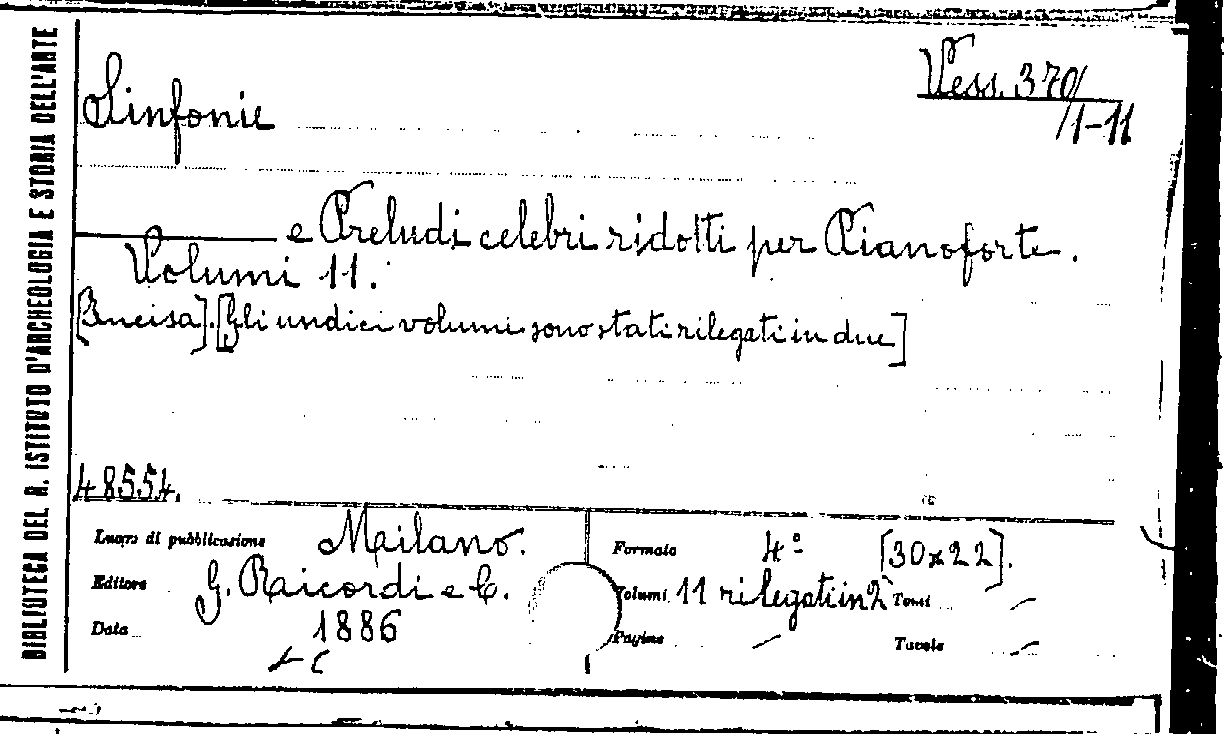 BIBLIOTECA DEL R. ISTITUTO D'ARCHEOLOGIA E STORIA DELL'ARTE
Vess. 370/
/1-11
Sinfonie
e Preludi celebri ridotti per Pianoforte.
Volumi 11.
[Incisa]. [Gli undici volumi sono stati rilegati in due]
48554.
Luogo di pubblicazione Milano.
Editore G. Ricordi e C.
Data 1886
Formato 4º [30x22].
Volumi 11 rilegati in 2 Tomi
Pagine
Tavole